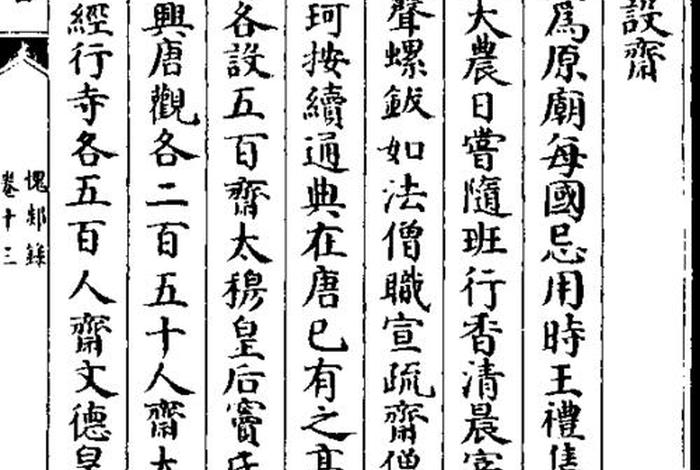 設齋
爲原廟每國忌用時王禮
大農日嘗隨班行香清晨
聲螺鈸如法僧職宣疏齋僧
珂按續通典在唐已有之高
各設五百齋太穆皇后竇氏
興唐觀各二百五十人齋太
經行寺各五百人齋文德皇
愧郯錄
卷十三